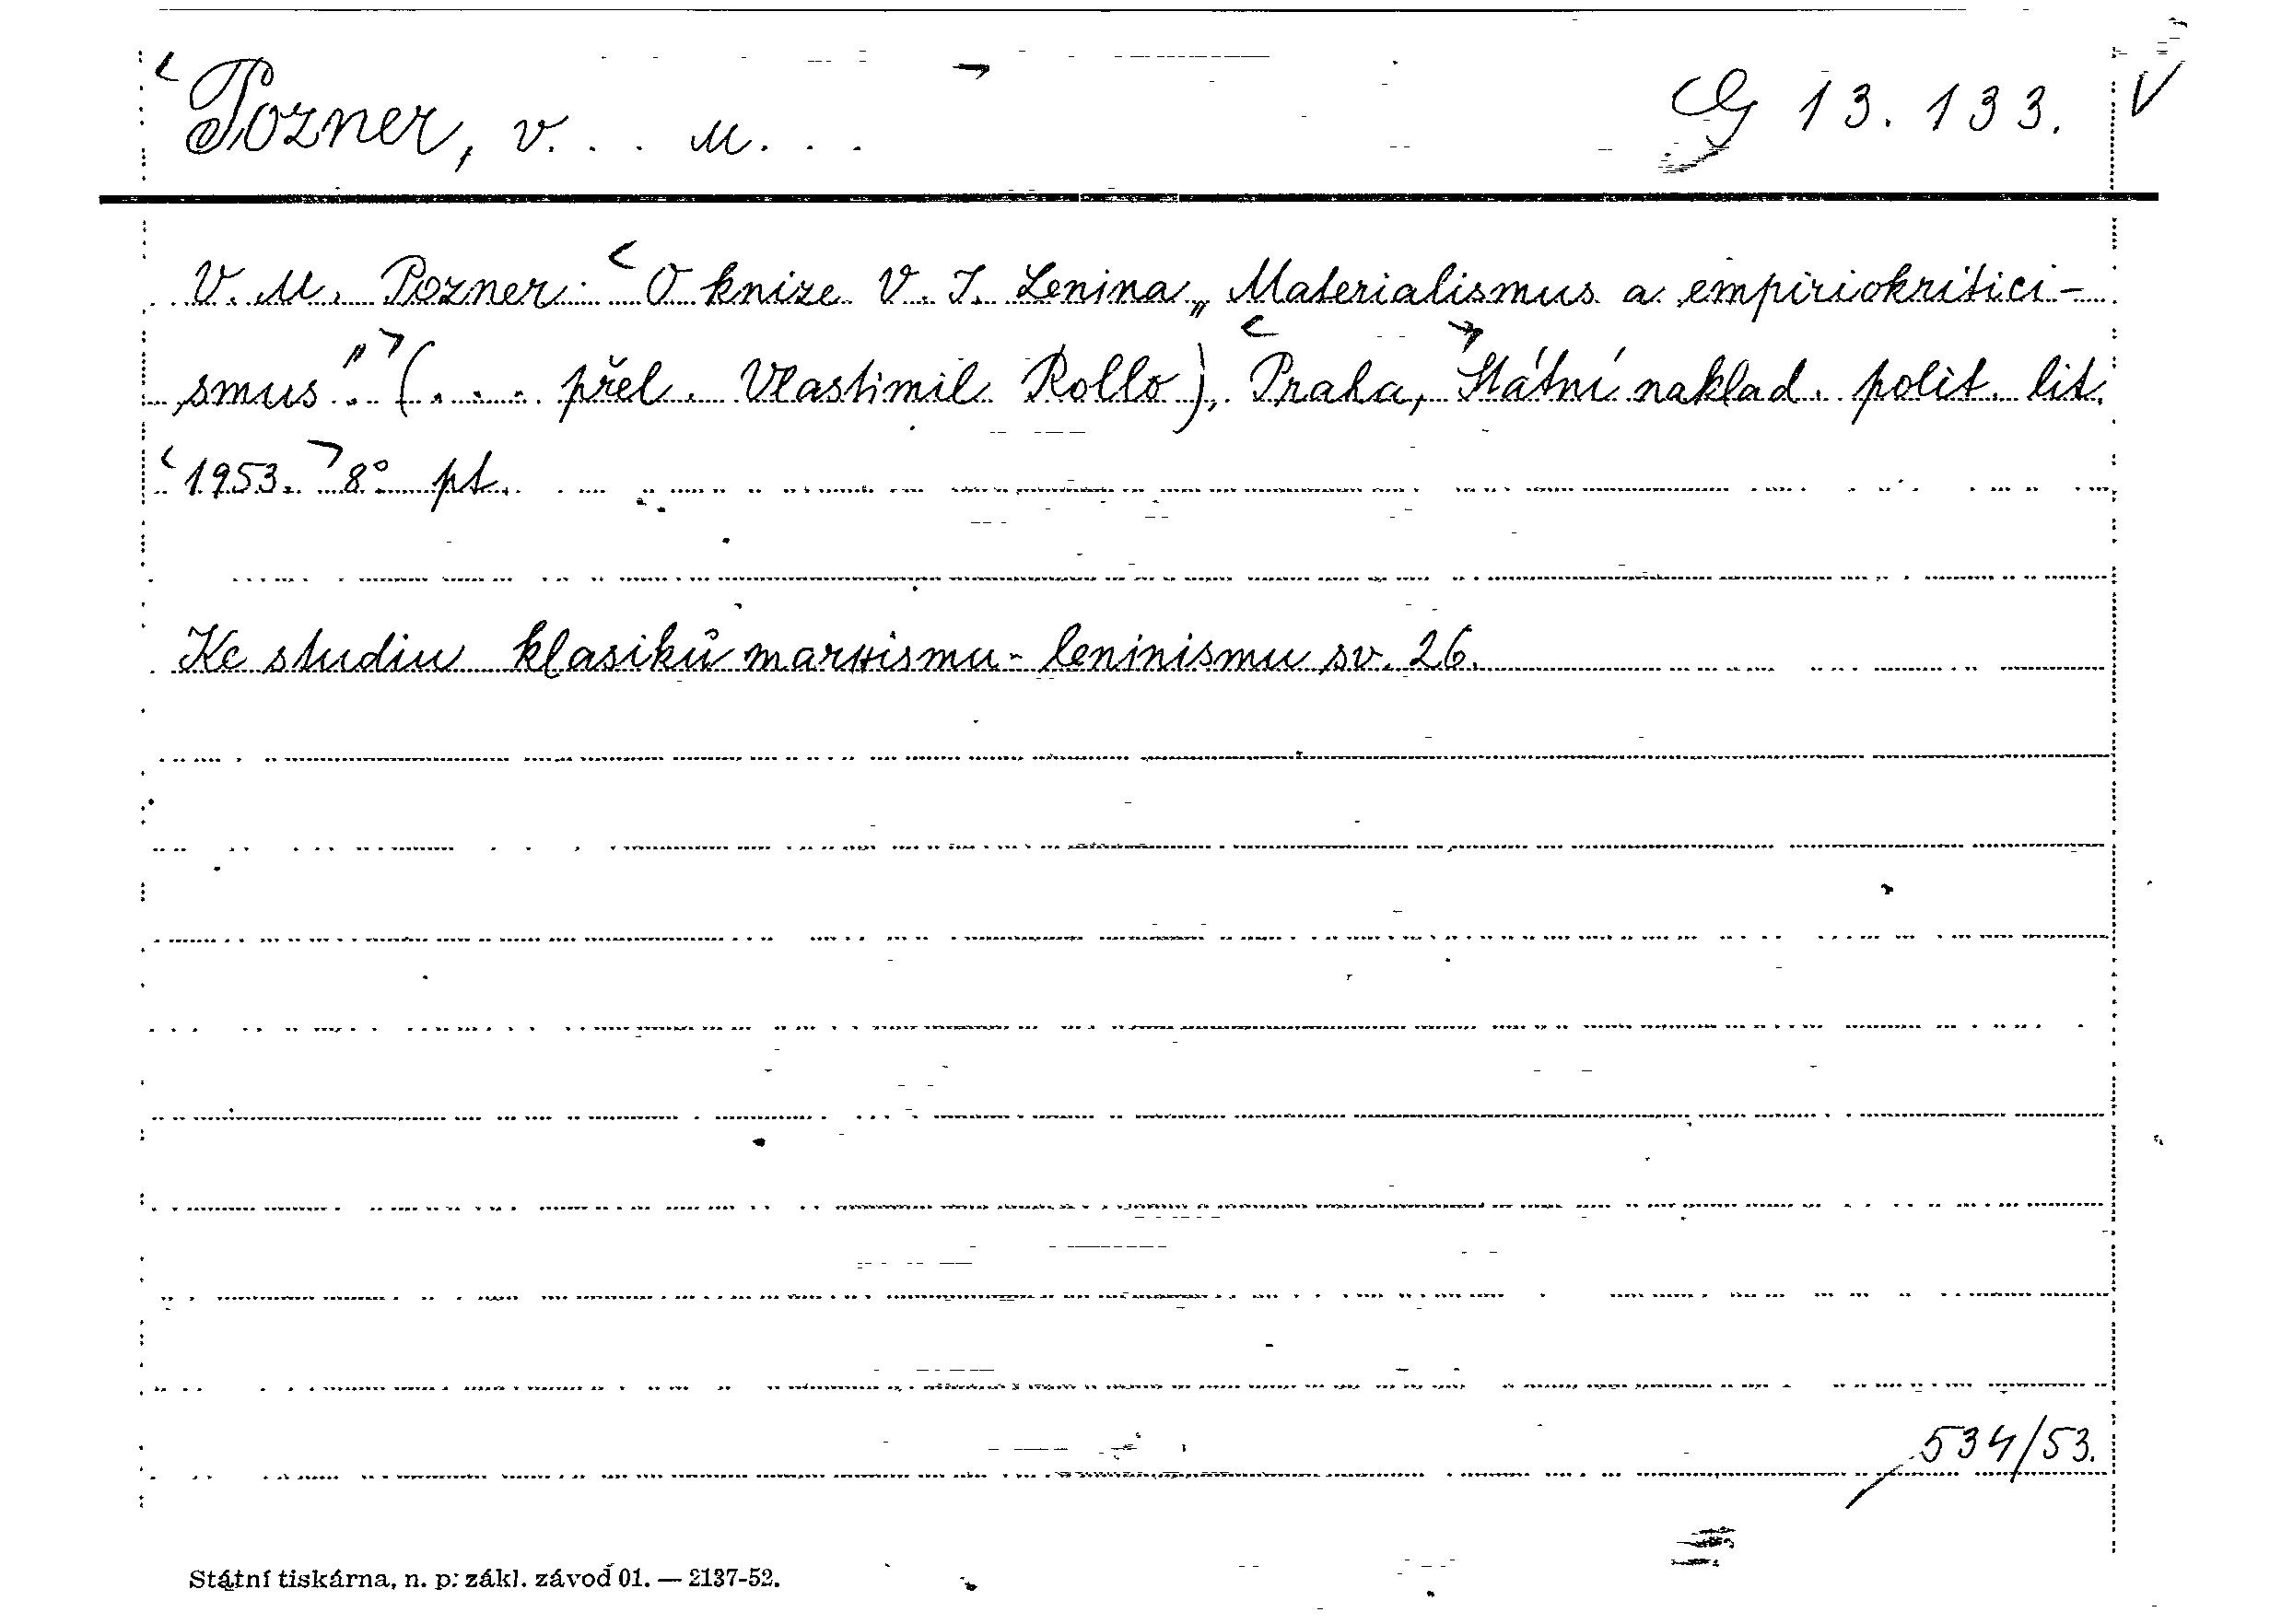 Pozner, V. . . M. . . G 13.133. V
V. M. Pozner: O knize V. I. Lenina „Materialismus a empiriokritici-
smus". (. . . . přel. Vlastimil Rollo), Praha, Státní naklad. polit. lit.
1953. 8° pt.
Ke studiu klasiků marxismu-leninismu sv. 26.
534/53.
Státní tiskárna, n. p: zákl. závod 01. — 2137-52.